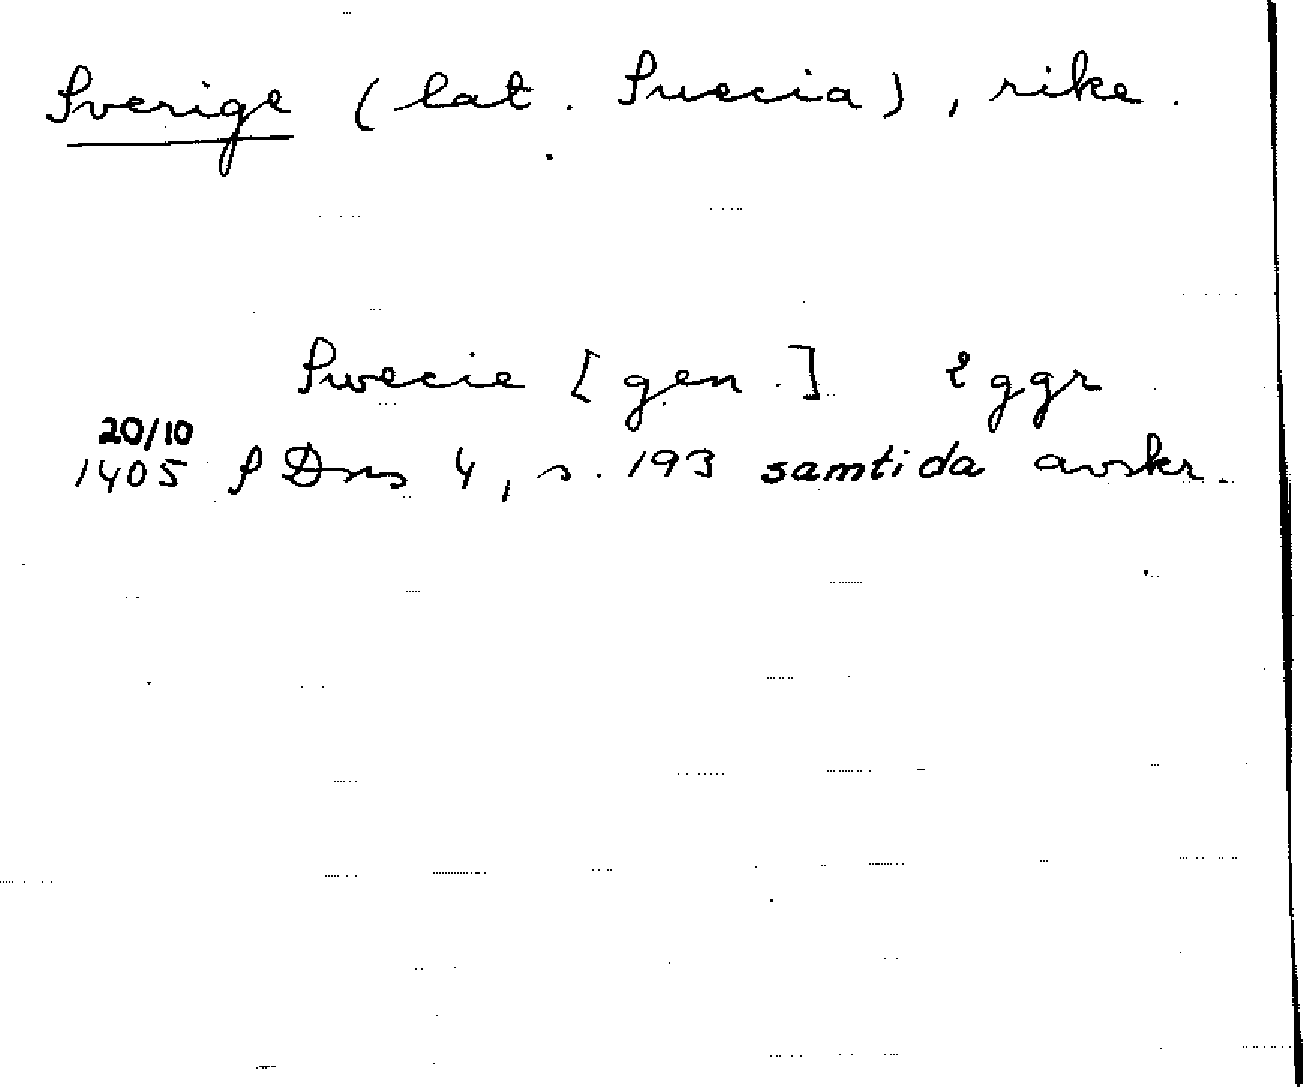 Sverige (lat. Suecia), rike.
Swecie [gen.] 2 ggr
20/10
1405 SDns 4, s. 193 samtida avskr.